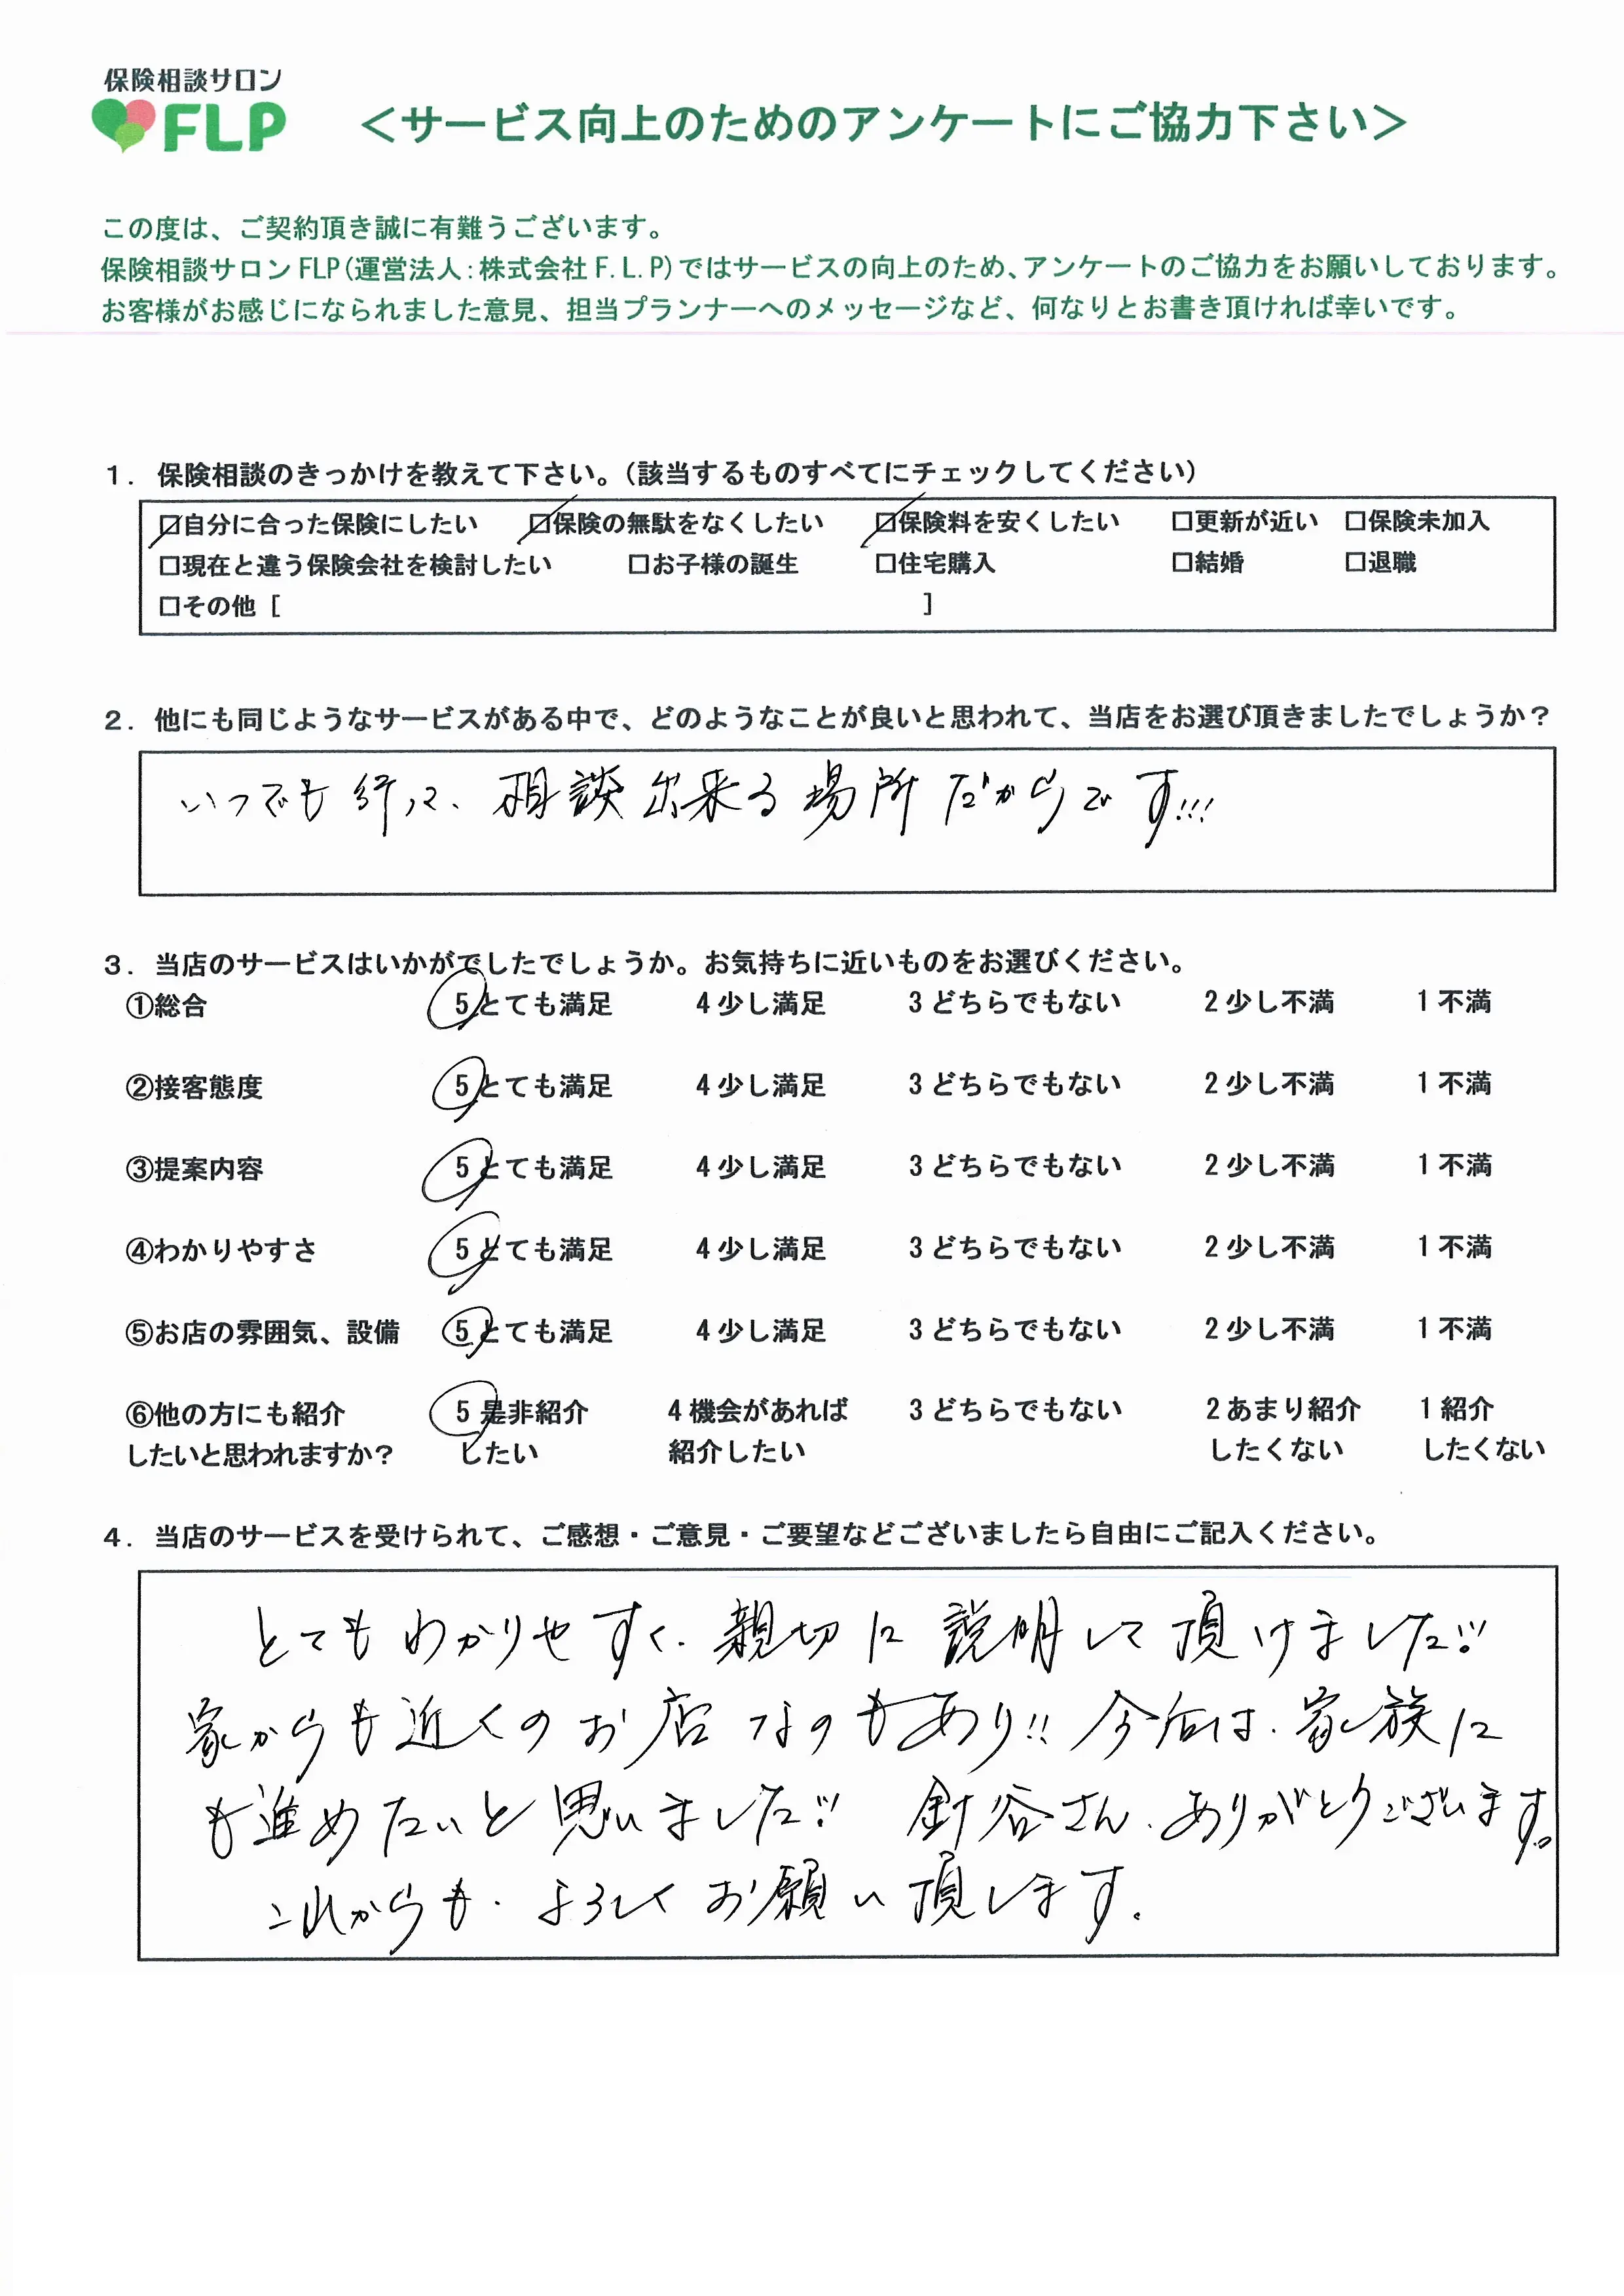 保険相談サロン
FLP
＜サービス向上のためのアンケートにご協力下さい＞
この度は、ご契約頂き誠に有難うございます。
保険相談サロンFLP(運営法人:株式会社F.L.P)ではサービスの向上のため、アンケートのご協力をお願いしております。
お客様がお感じになられました意見、担当プランナーへのメッセージなど、何なりとお書き頂ければ幸いです。
１．保険相談のきっかけを教えて下さい。（該当するものすべてにチェックしてください）
☑自分に合った保険にしたい ☑保険の無駄をなくしたい ☑保険料を安くしたい □更新が近い □保険未加入
□現在と違う保険会社を検討したい □お子様の誕生 □住宅購入 □結婚 □退職
□その他［ ］
２．他にも同じようなサービスがある中で、どのようなことが良いと思われて、当店をお選び頂きましたでしょうか？
いつでも行って、相談出来る場所だからです!!!
３．当店のサービスはいかがでしたでしょうか。お気持ちに近いものをお選びください。
①総合 5とても満足 4少し満足 3どちらでもない 2少し不満 1不満
②接客態度 5とても満足 4少し満足 3どちらでもない 2少し不満 1不満
③提案内容 5とても満足 4少し満足 3どちらでもない 2少し不満 1不満
④わかりやすさ 5とても満足 4少し満足 3どちらでもない 2少し不満 1不満
⑤お店の雰囲気、設備 5とても満足 4少し満足 3どちらでもない 2少し不満 1不満
⑥他の方にも紹介 5是非紹介 4機会があれば 3どちらでもない 2あまり紹介 1紹介
したいと思われますか？ したい 紹介したい したくない したくない
４．当店のサービスを受けられて、ご感想・ご意見・ご要望などございましたら自由にご記入ください。
とてもわかりやすく、親切に説明して頂けました!!
家からも近くのお店なのもあり!! 今后は、家族に
も進めたいと思いました!! 針谷さん、ありがとうございます。
これからも、よろしくお願い頂します。